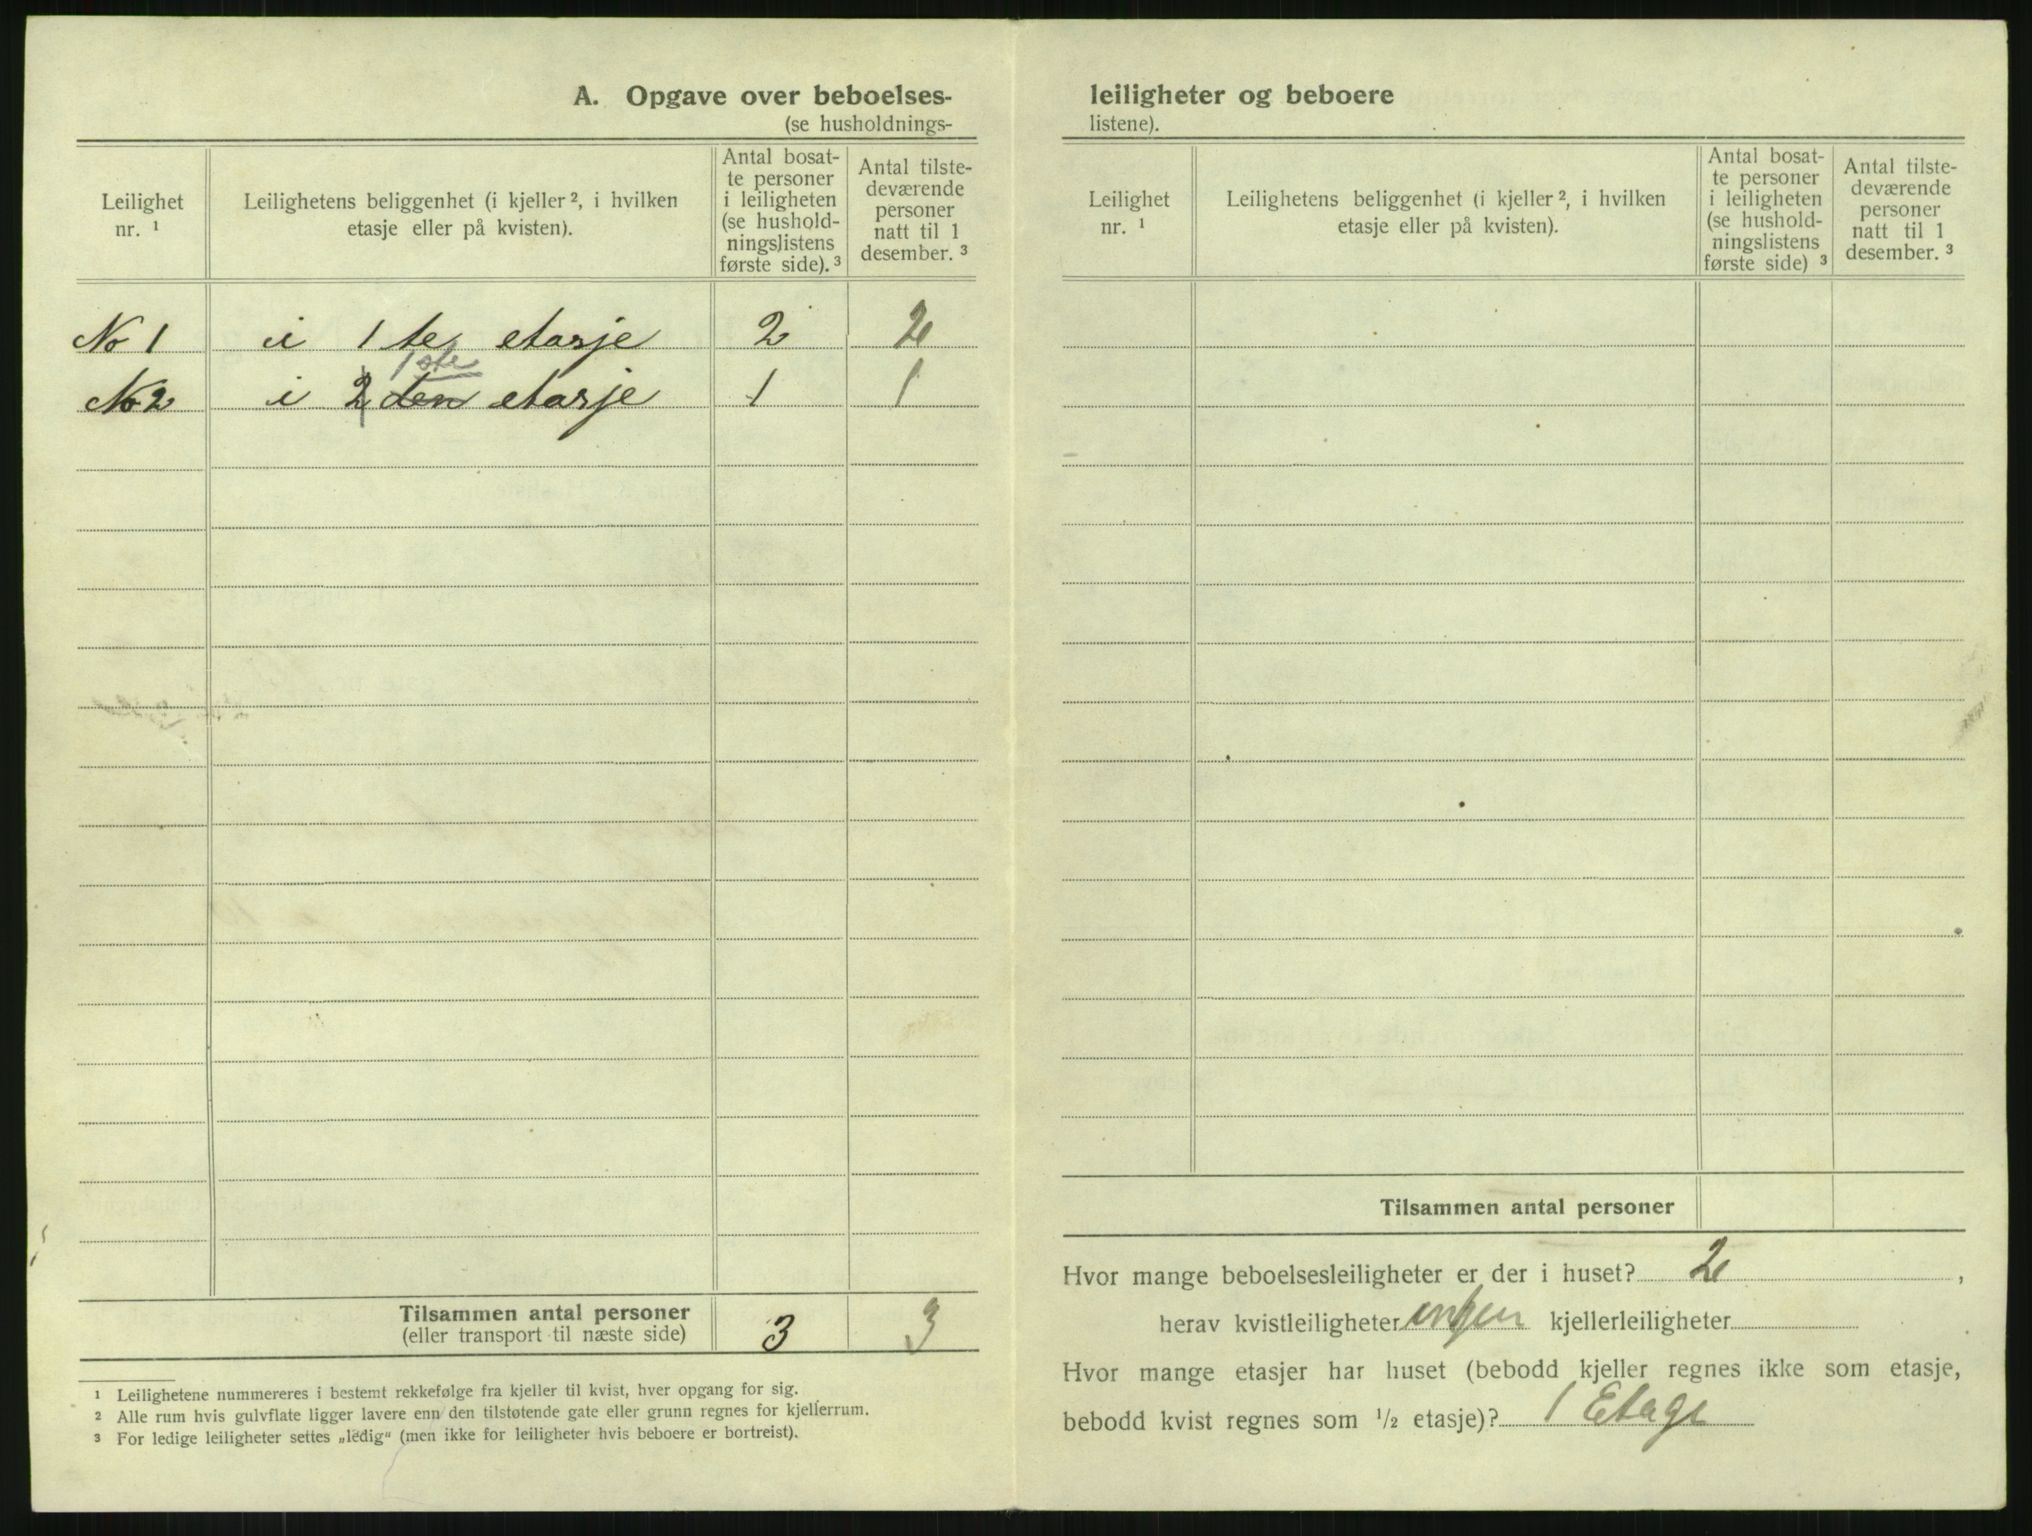 A. Opgave over beboelses-
(se husholdnings-
Leilighet nr. ¹
Leilighetens beliggenhet (i kjeller ², i hvilken etasje eller på kvisten).
Antal bosat-
te personer
i leiligheten
(se hushold-
ningslistens
første side). ³
Antal tilste-
deværende
personer
natt til 1
desember. ³
No 1 i 1 te etasje 2 2
1ste
No 2 i 2 den etasje 1 1
Tilsammen antal personer 3 3
(eller transport til næste side)
¹ Leilighetene nummereres i bestemt rekkefølge fra kjeller til kvist, hver opgang for sig.
² Alle rum hvis gulvflate ligger lavere enn den tilstøtende gate eller grunn regnes for kjellerrum.
³ For ledige leiligheter settes „ledig“ (men ikke for leiligheter hvis beboere er bortreist).
leiligheter og beboere
listene).
Leilighet nr. ¹
Leilighetens beliggenhet (i kjeller ², i hvilken etasje eller på kvisten).
Antal bosat-
te personer
i leiligheten
(se hushold-
ningslistens
første side) ³
Antal tilste-
deværende
personer
natt til 1
desember. ³
Tilsammen antal personer
Hvor mange beboelsesleiligheter er der i huset? 2 ,
herav kvistleiligheter ingen kjellerleiligheter
Hvor mange etasjer har huset (bebodd kjeller regnes ikke som etasje,
bebodd kvist regnes som ½ etasje)? 1 Etage